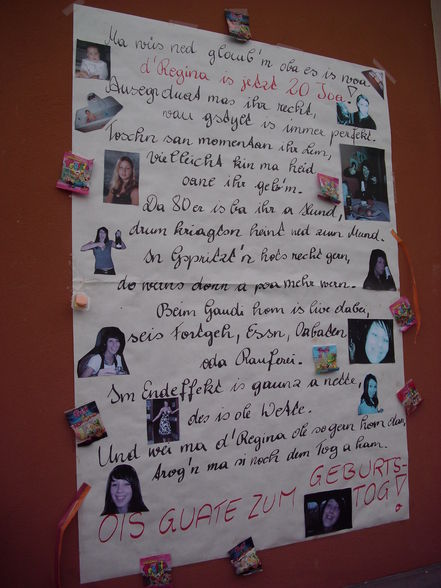 Ma wüs ned glaub'm oba es is woa
d'Regina is jetzt 20 Joa!
Ausegruat mas ihr recht,
wau gstylt is immer perfekt.
Toschn san momentan ihr Lem,
vielleicht kin ma heid
oane ihr geb'm.
Da 80er is ba ihr a Hund,
drum kriagt on heint ned zum Mund.
Sn Gspritzt'n hots recht gern,
do wans dann a poa mehr wern.
Beim Gaudi hom is live dabei,
seis Fortgeh, Essn, Oabaten
oda Rauferei.
Im Endeffekt is gaunz a nette,
des is ole Wette.
Und wei ma d'Regina ole so gern hom dan,
drog'n ma si noch dem Tog a ham.
OIS GUATE ZUM GEBURTS-
TOG!